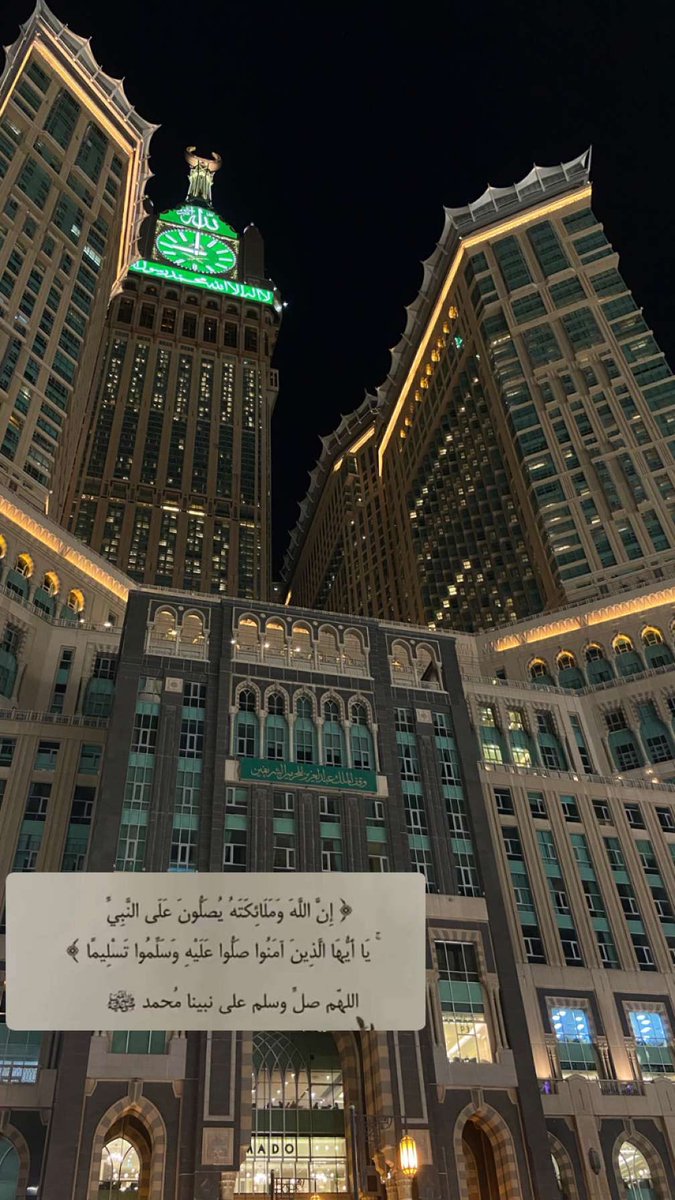 الله
لا اله الا الله محمد رسول الله
وقف الملك عبدالعزيز للحرمين الشريفين
﴿ إِنَّ اللَّهَ وَمَلَائِكَتَهُ يُصَلُّونَ عَلَى النَّبِيِّ ۚ
يَا أَيُّهَا الَّذِينَ آمَنُوا صَلُّوا عَلَيْهِ وَسَلِّمُوا تَسْلِيمًا ﴾
اللهّم صلِّ وسلم على نبينا مُحمد ﷺ
MADO